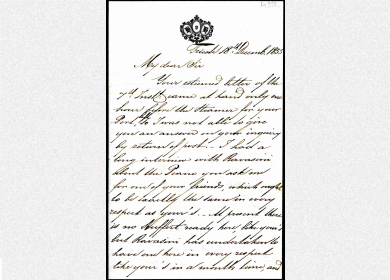 Trieste 18th Decemb. 1855
My dear Sir
Your esteemed letter of the
7th Inst. came at hand only one
hour before the Steamer for your
Port, so I was not able to give
you an answer on your inquiry
by return of post.. I had a
long interview with Ravasini
about the Piano you ask me
for one of your friends, which ought
to be exactly the same in every
respect as your's.. At present there
is no ready here like your's
but Ravasini has undertaken to
have one here in every respect
like your's in a month time, and